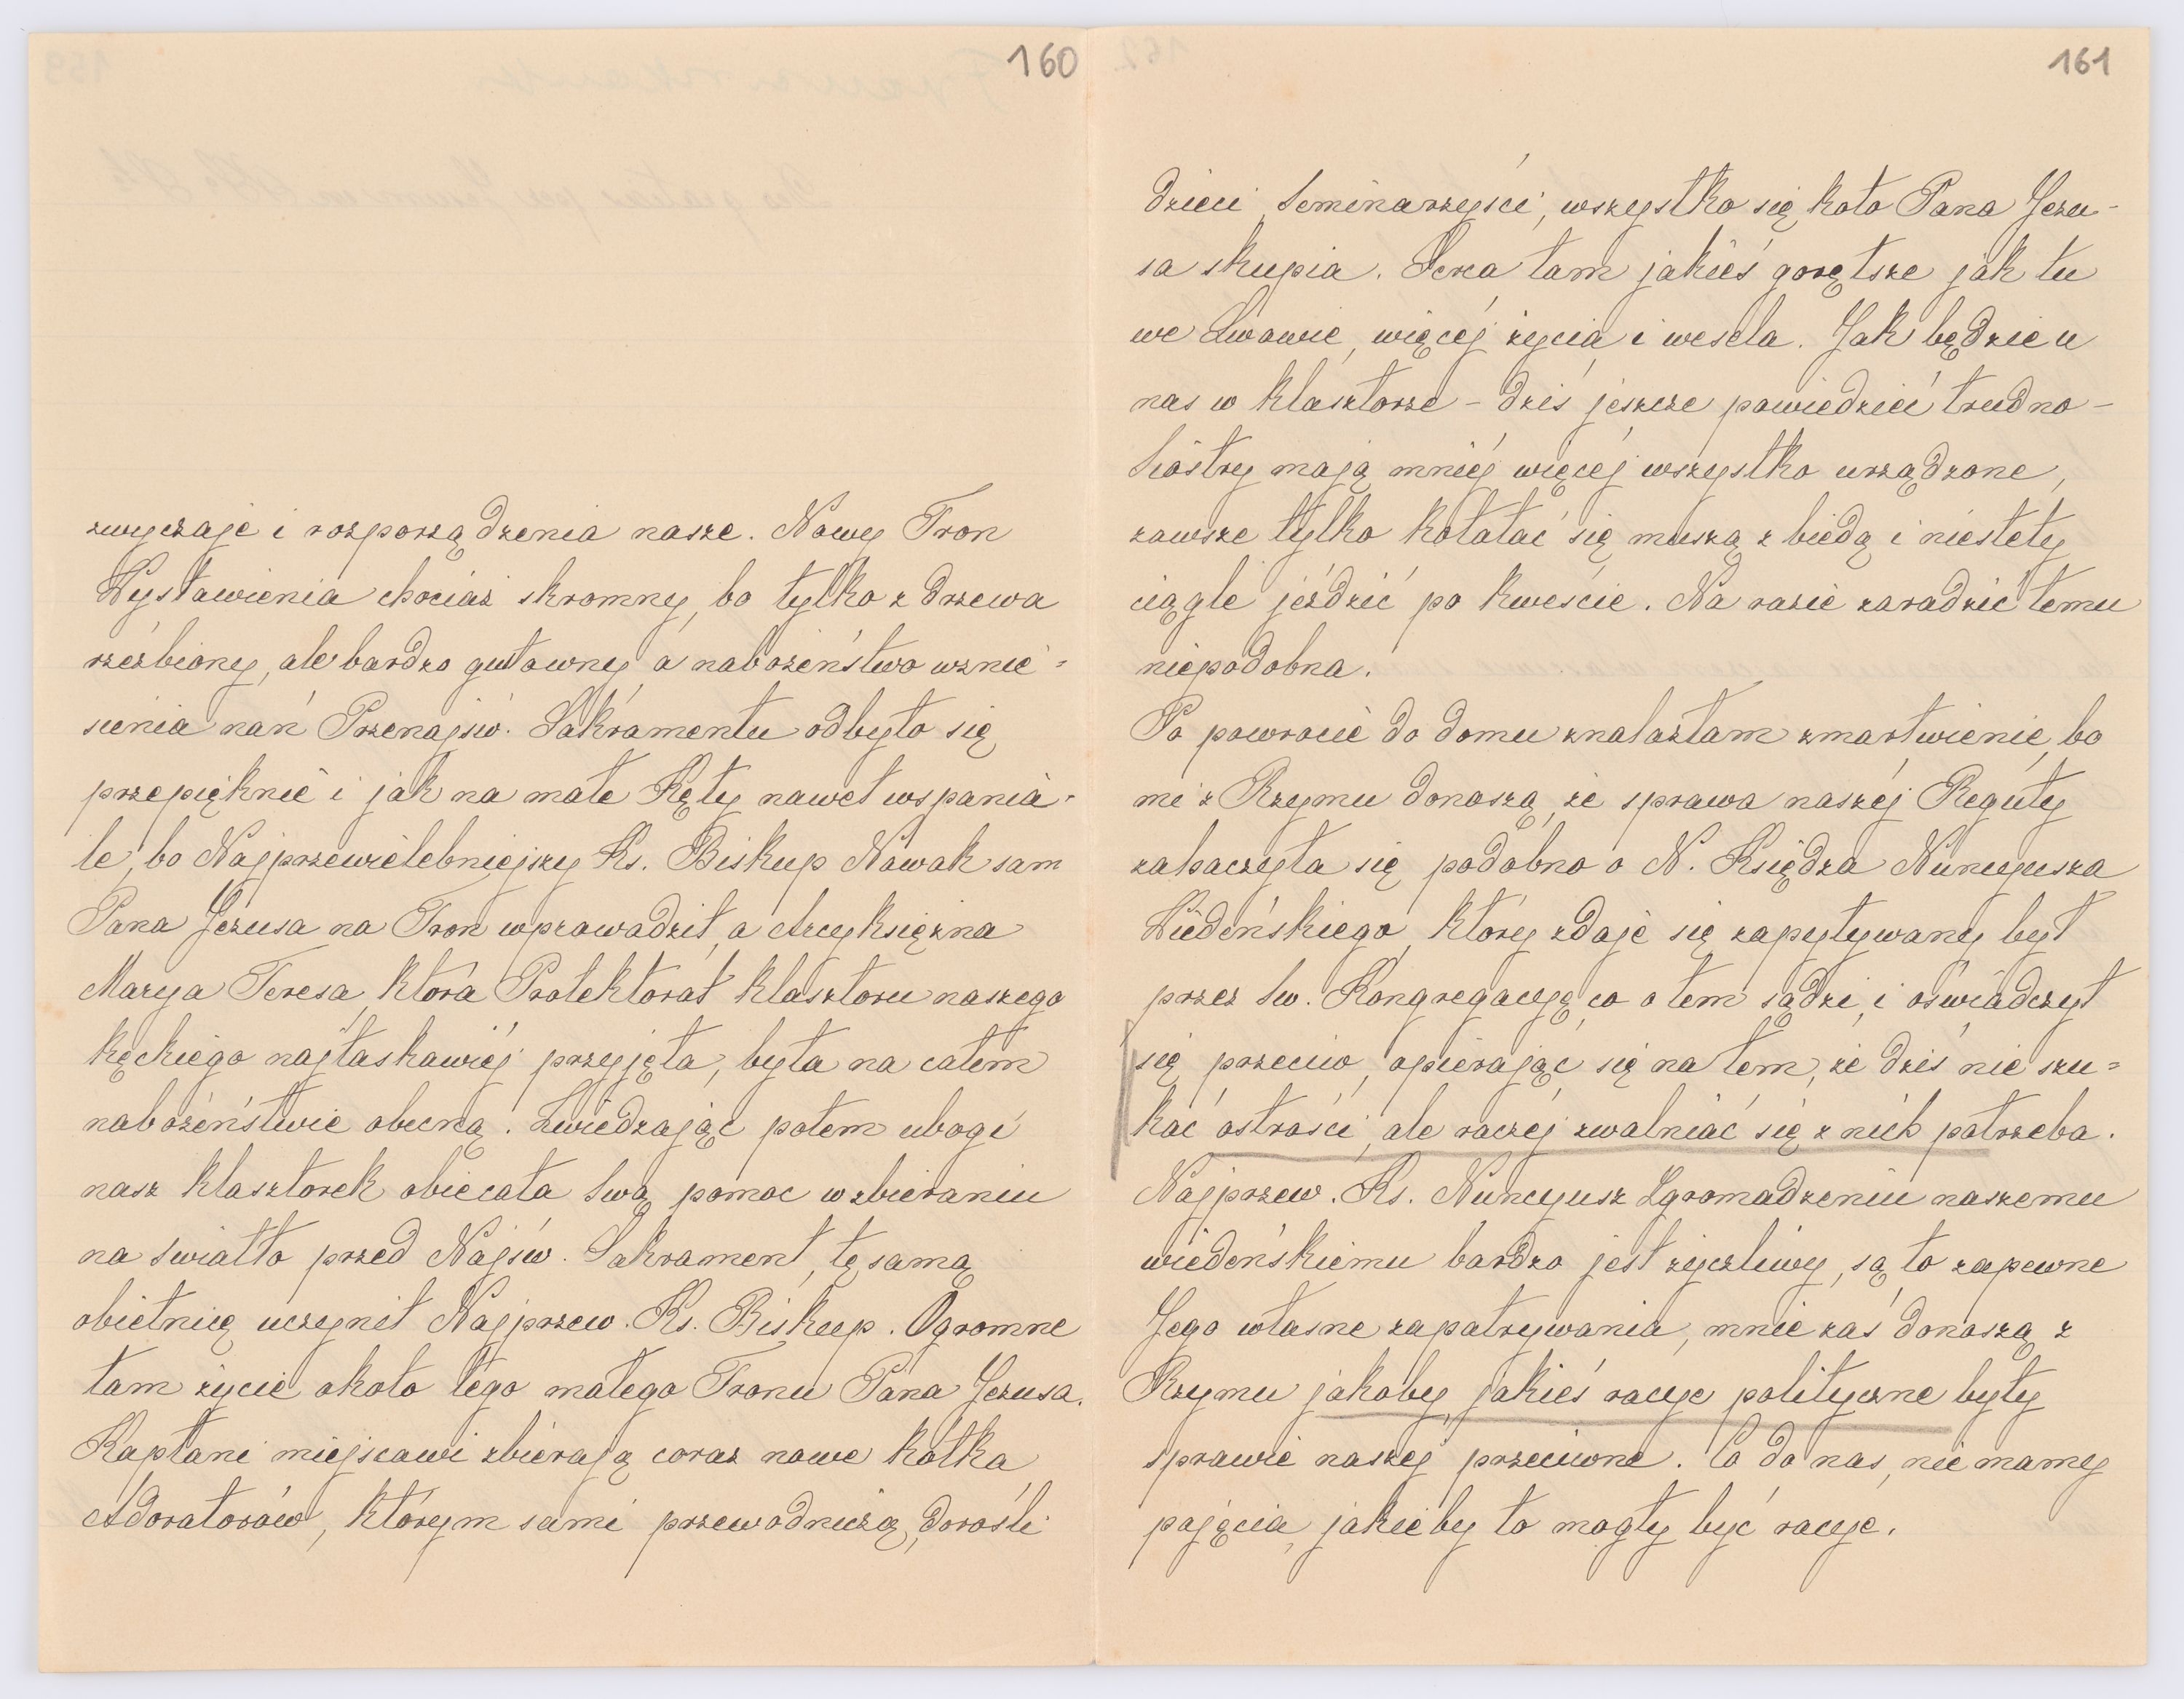 160
zwyczaje i rozporządzenia nasze. Nowy Tron
Wystawienia chociaż skromny, bo tylko z drzewa
rzeźbiony, ale bardzo gustowny, a nabożeństwo wznie=
sienia nań Przenajśw. Sakramentu odbyło się
przepięknie i jak na małe Kęty nawet wspania=
le, bo Najprzewielebniejszy Ks. Biskup Nowak sam
Pana Jezusa na Tron wprowadził, a Arcyksiężna
Marya Teresa, która Protektorat klasztoru naszego
kęckiego najłaskawiéj przyjęła, była na całem
nabożeństwie obecną. Zwiedzając potem ubogi
nasz klasztorek obiecała swą pomoc w zbieraniu
na światło przed Najśw. Sakrament, tę samą
obietnicę uczynił Najprzew. Ks. Biskup. Ogromne
tam życie około tego małego Tronu Pana Jezusa.
Kapłani miejscowi zbierają coraz nowe kółka
Adoratorów, którym sami przewodniczą, dorośli
161
dzieci, Seminarzyści, wszystko się koło Pana Jezu-
sa skupia. Serca tam jakieś gorętsze jak tu
we Lwowie, więcéj życia i wesela. Jak będzie u
nas w klasztorze – dziś jeszcze powiedzieć trudno –
Siostry mają mniéj więcéj wszystko urządzone,
zawsze tylko kołatać się muszą z biedą i niestety
ciągle jeździć po kweście. Na razie zaradzić temu
niepodobna.
Po powrocie do domu znalazłam zmartwienie, bo
mi z Rzymu donoszą, że sprawa naszéj Reguły
zahaczyła się podobno o N. Księdza Nuncyusza
Wiedeńskiego, który zdaje się zapytywany był
przez Św. Kongregacyę, co o tem sądzi, i oświadczył
się przeciw, opierając się na tem, że dziś nie szu=
kać ostrości, ale raczéj zwalniać się z nich potrzeba.
Najprzew. Ks. Nuncyusz Zgromadzeniu naszemu
wiedeńskiemu bardzo jest życzliwy, są to zapewne
Jego własne zapatrywania, mnie zaś donoszą z
Rzymu jakoby jakieś racye polityczne były
sprawie naszéj przeciwne. Co do nas, nie mamy
pojęcia, jakieby to mogły być racye.